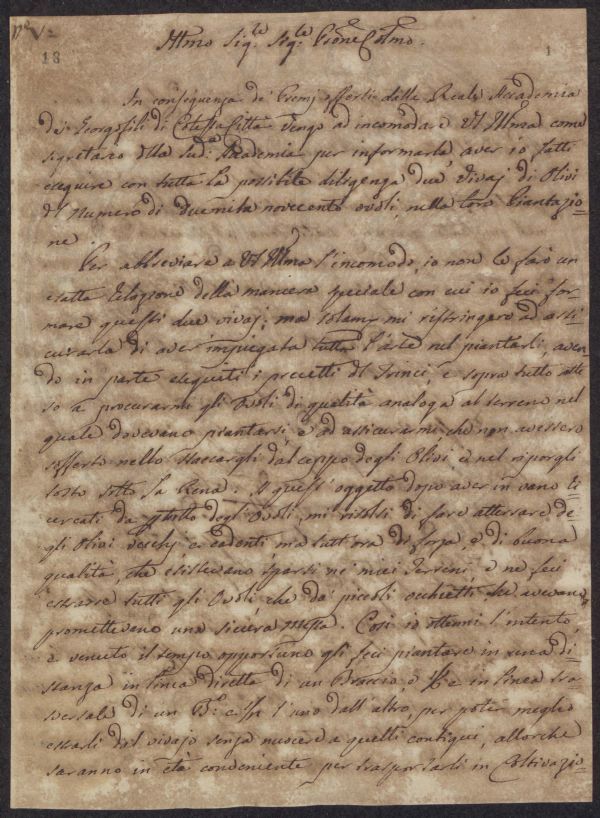 N.° V2
18
1
Illmo Sig.re Sig.re Prone Colmo.
In conseguenza de' Premj offerti dalla Reale Accademia
dei Georgofili di Cotesta Città vengo ad incomodare VS Illma come
segretario della sud.a Accademia per informarla, aver io fatti
eseguire con tutta la possibile diligenza due Vivaj di Olivi
di Numero di Duemila novecento ovoli, nella loro Piantazio=
ne.
Per abbreviare a VS Illma l'incomodo, io non le farò un
esatta Relazione della maniera speciale con cui io feci for=
mare questi due vivaj; ma solam.e mi ristringerò ad assi=
curarla di aver impiegata tutta l'arte nel piantarli, aven=
do in parte eseguiti i precetti del Trinci, e sopra tutto atte
so a procurarmi gli Ovoli di qualità analoga al terreno nel
quale dovevano piantarsi, e ad assicurarmi che non avessero
sofferto nello staccargli dal ceppo degli Olivi, e nel riporgli
tosto sotto la Rena. A quest'oggetto dopo aver in vano ri=
cercati da degli Ovoli, mi risolsi di fare atterrare de=
gli Olivi vecchj e cadenti ma tutt'ora di forza, e di buona
qualità, che esistevano sparsi ne' miei Terreni, e ne feci
estrarre tutti gli Ovoli che da' piccoli occhietti che avevano,
promettevano una sicura messa. Così io ottenni l'intento
e venuto il tempo opportuno gli feci piantare in una di=
stanza in linea diretta di un Braccio e e in linea tra
sversale di un B.o e l'uno dall'altro, per poter meglio
estrarli dal vivajo senza nuocere a quelli contigui, allorchè
saranno in età conveniente per trasportarli in Coltivazio=